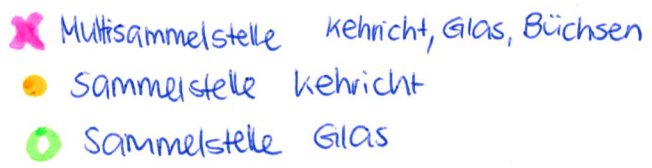 Multisammelstelle Kehricht, Glas, Büchsen
Sammelstelle Kehricht
Sammelstelle Glas